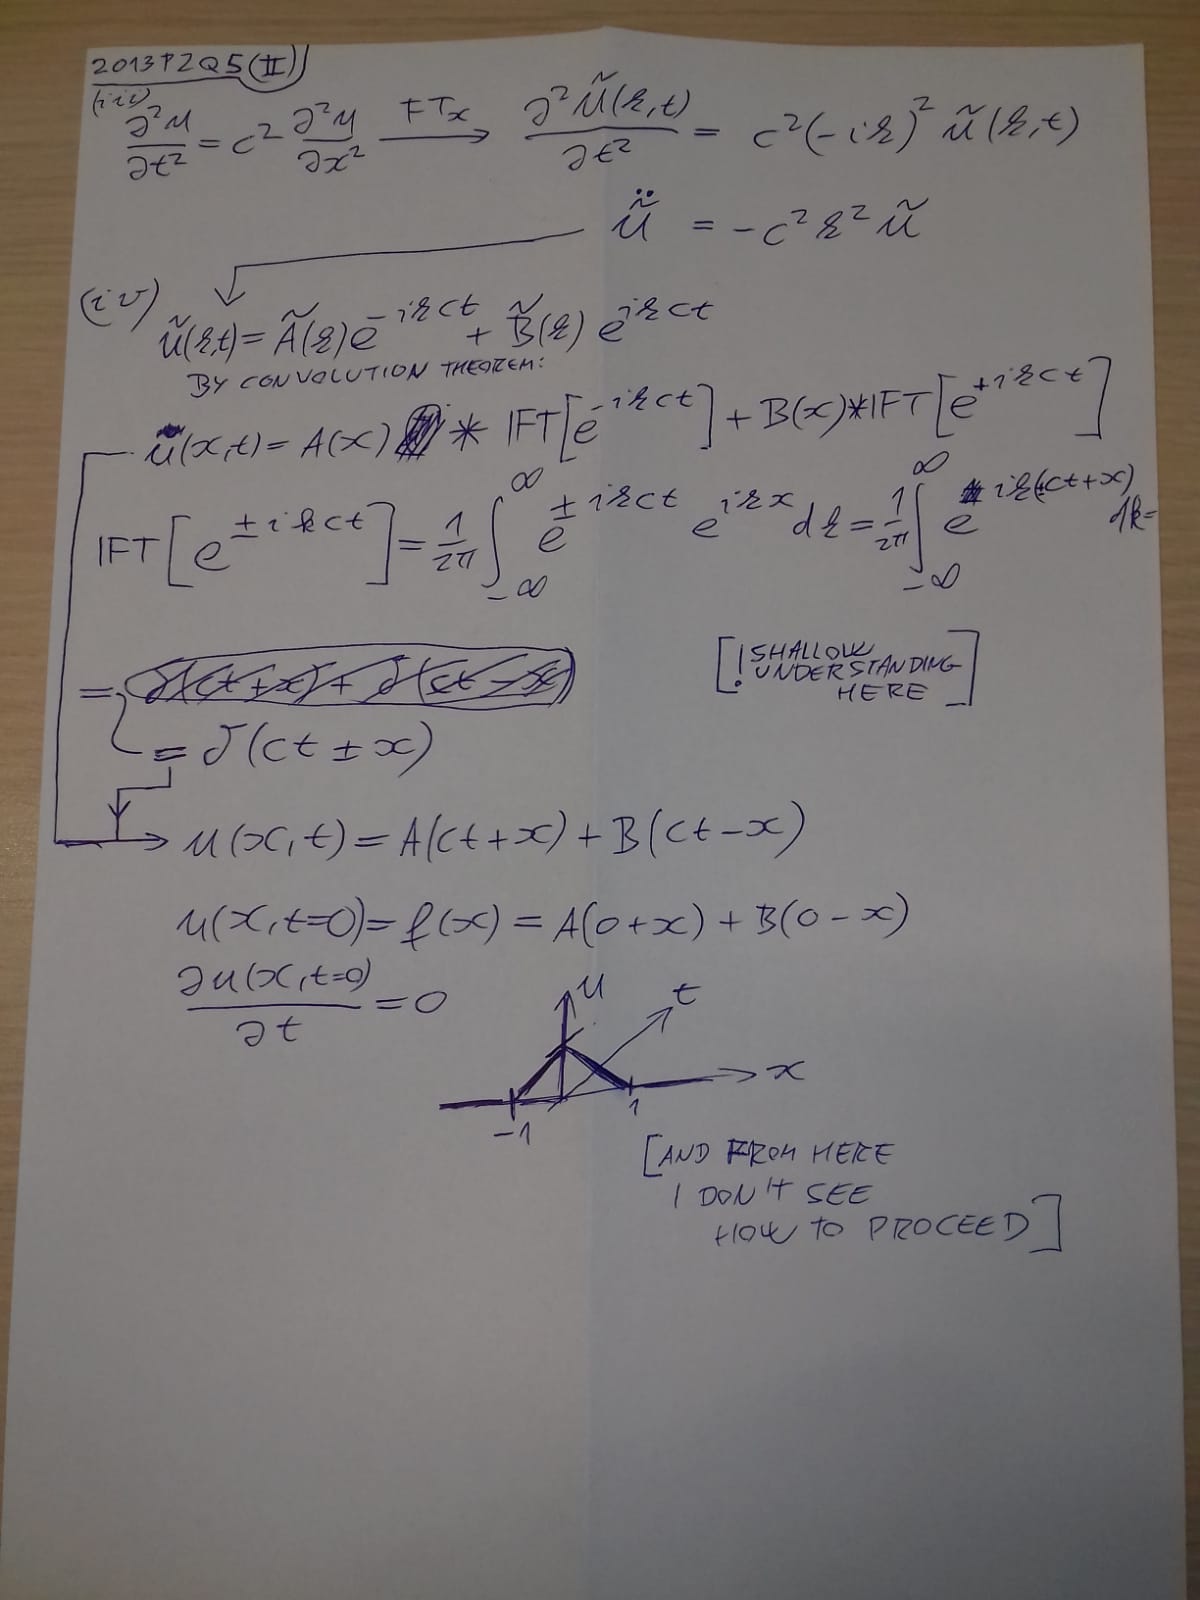 2013 P2 Q5 (II)
(iii)
∂²u/∂t² = c² ∂²u/∂x² FTₓ→ ∂²ũ(k,t)/∂t² = c²(-ik)² ũ(k,t)
ũ̈ = -c²k²ũ
(iv)
ũ(k,t) = Ã(k)e^{-ikct} + B̃(k)e^{ikct}
BY CONVOLUTION THEOREM:
u(x,t) = A(x) * IFT[e^{-ikct}] + B(x)*IFT[e^{+ikct}]
IFT[e^{±ikct}] = 1/2π ∫_{-∞}^{∞} e^{±ikct} e^{ikx} dk = 1/2π ∫_{-∞}^{∞} e^{ik(±ct+x)} dk =
[! SHALLOW
UNDERSTANDING
HERE]
= δ(ct+x) + δ(ct-x)
= δ(ct ± x)
u(x,t) = A(ct+x) + B(ct-x)
u(x,t=0) = f(x) = A(0+x) + B(0-x)
∂u(x,t=0)/∂t = 0
u
t
x
-1
1
[AND FROM HERE
I DON'T SEE
HOW TO PROCEED]